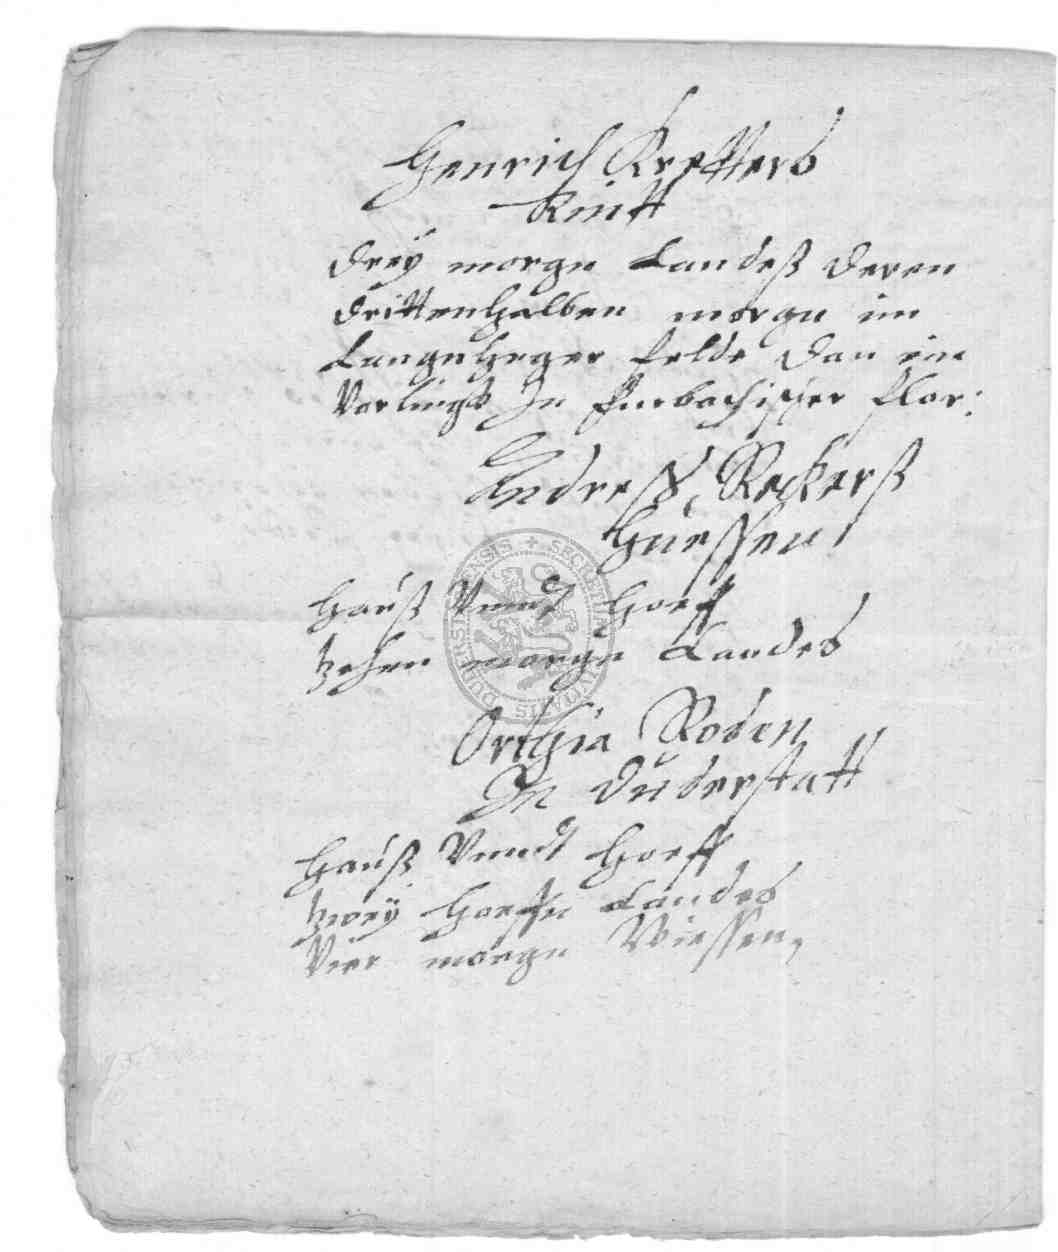 Henrich Kretters
Kintt
Drey morge Landeß deren
drittenhalben morge im
Langenheger felde dan ein
Vorlingk In furbachischer flor:
Andreß Reckerß
Huessen
Hauß Vnndt Hoeff
zehen morge Landes
Orthia Roden
In Duderstatt
Hauß Vnndt Hoeff
zwey Hoeffe Landes
Vier morge Wiessen,
SECRETUM CIVITATIS DUDERSTADENSIS